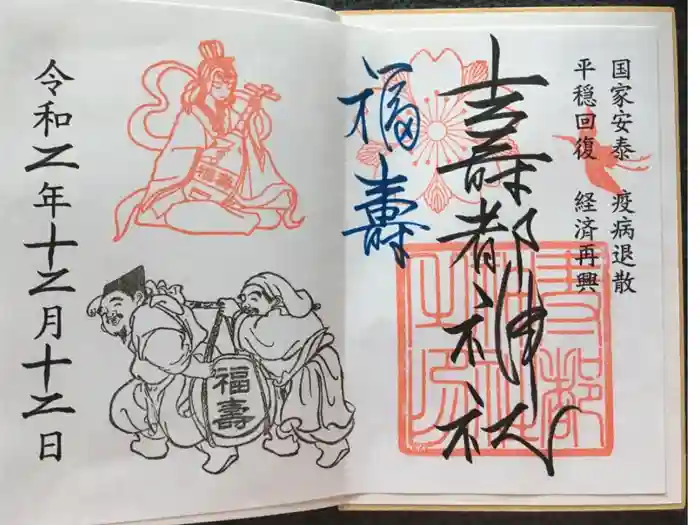 国家安泰 疫病退散
平穏回復 経済再興
吉壽都神社
福壽
福壽
令和二年十二月十二日